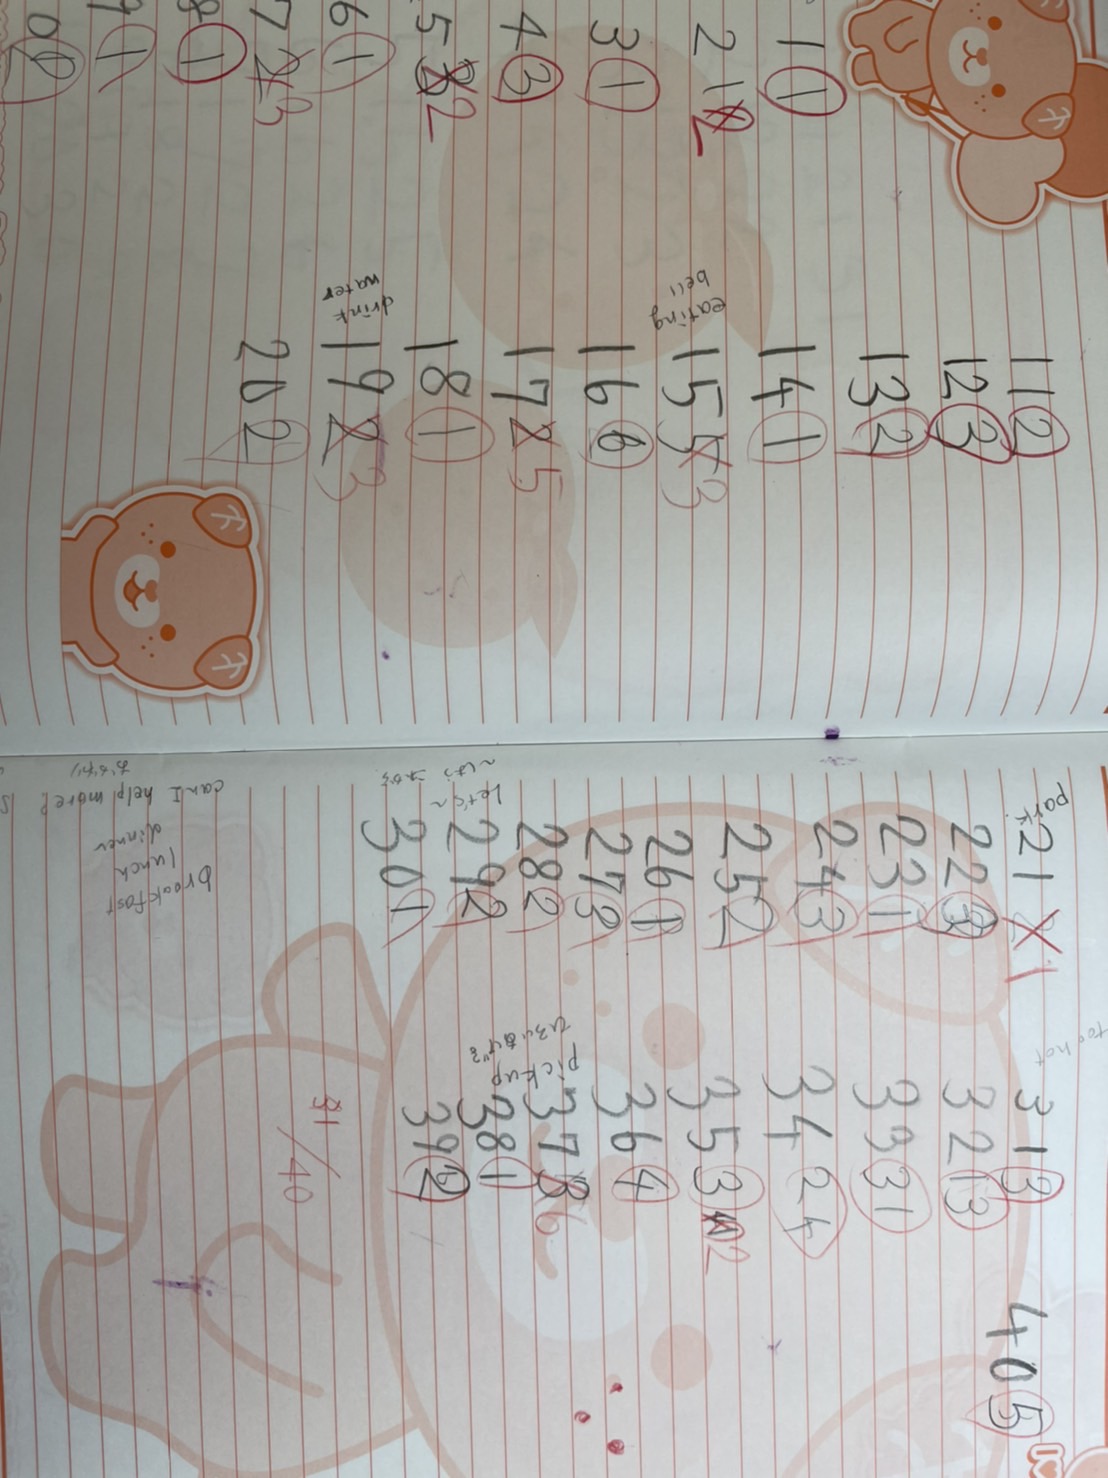 1 1
2 1 2
3 1
4 3
5 3 2
6 1
7 2 3
8 1
9 1
11 2
12 3
13 2
14 1
15 5 3
eating
bell
16 6
17 2 5
18 1
19 2 3
drink
water
20 2
park
21 1
22 3
23 1
24 3
25 2
26 1
27 3
28 2
29 2
Let's~
30 1
too hot
31 3
32 13
33 31
34 24
35 3 2
36 4
37 3 6
pick up
ひろいあげる
38 1
39 2
40 5
31/40
can I help more?
dinner
lunch
breakfast